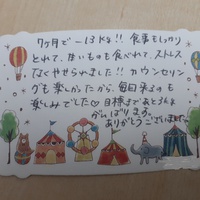 7ヶ月で－13Kg!! 食事もしっかり
とれて、甘いものも食べれて、ストレス
なくやせられました!! カウンセリン
グも楽しかったから、毎回来るのも
楽しみでした♡ 目標まであと3kg
がんばります。
ありがとうございました